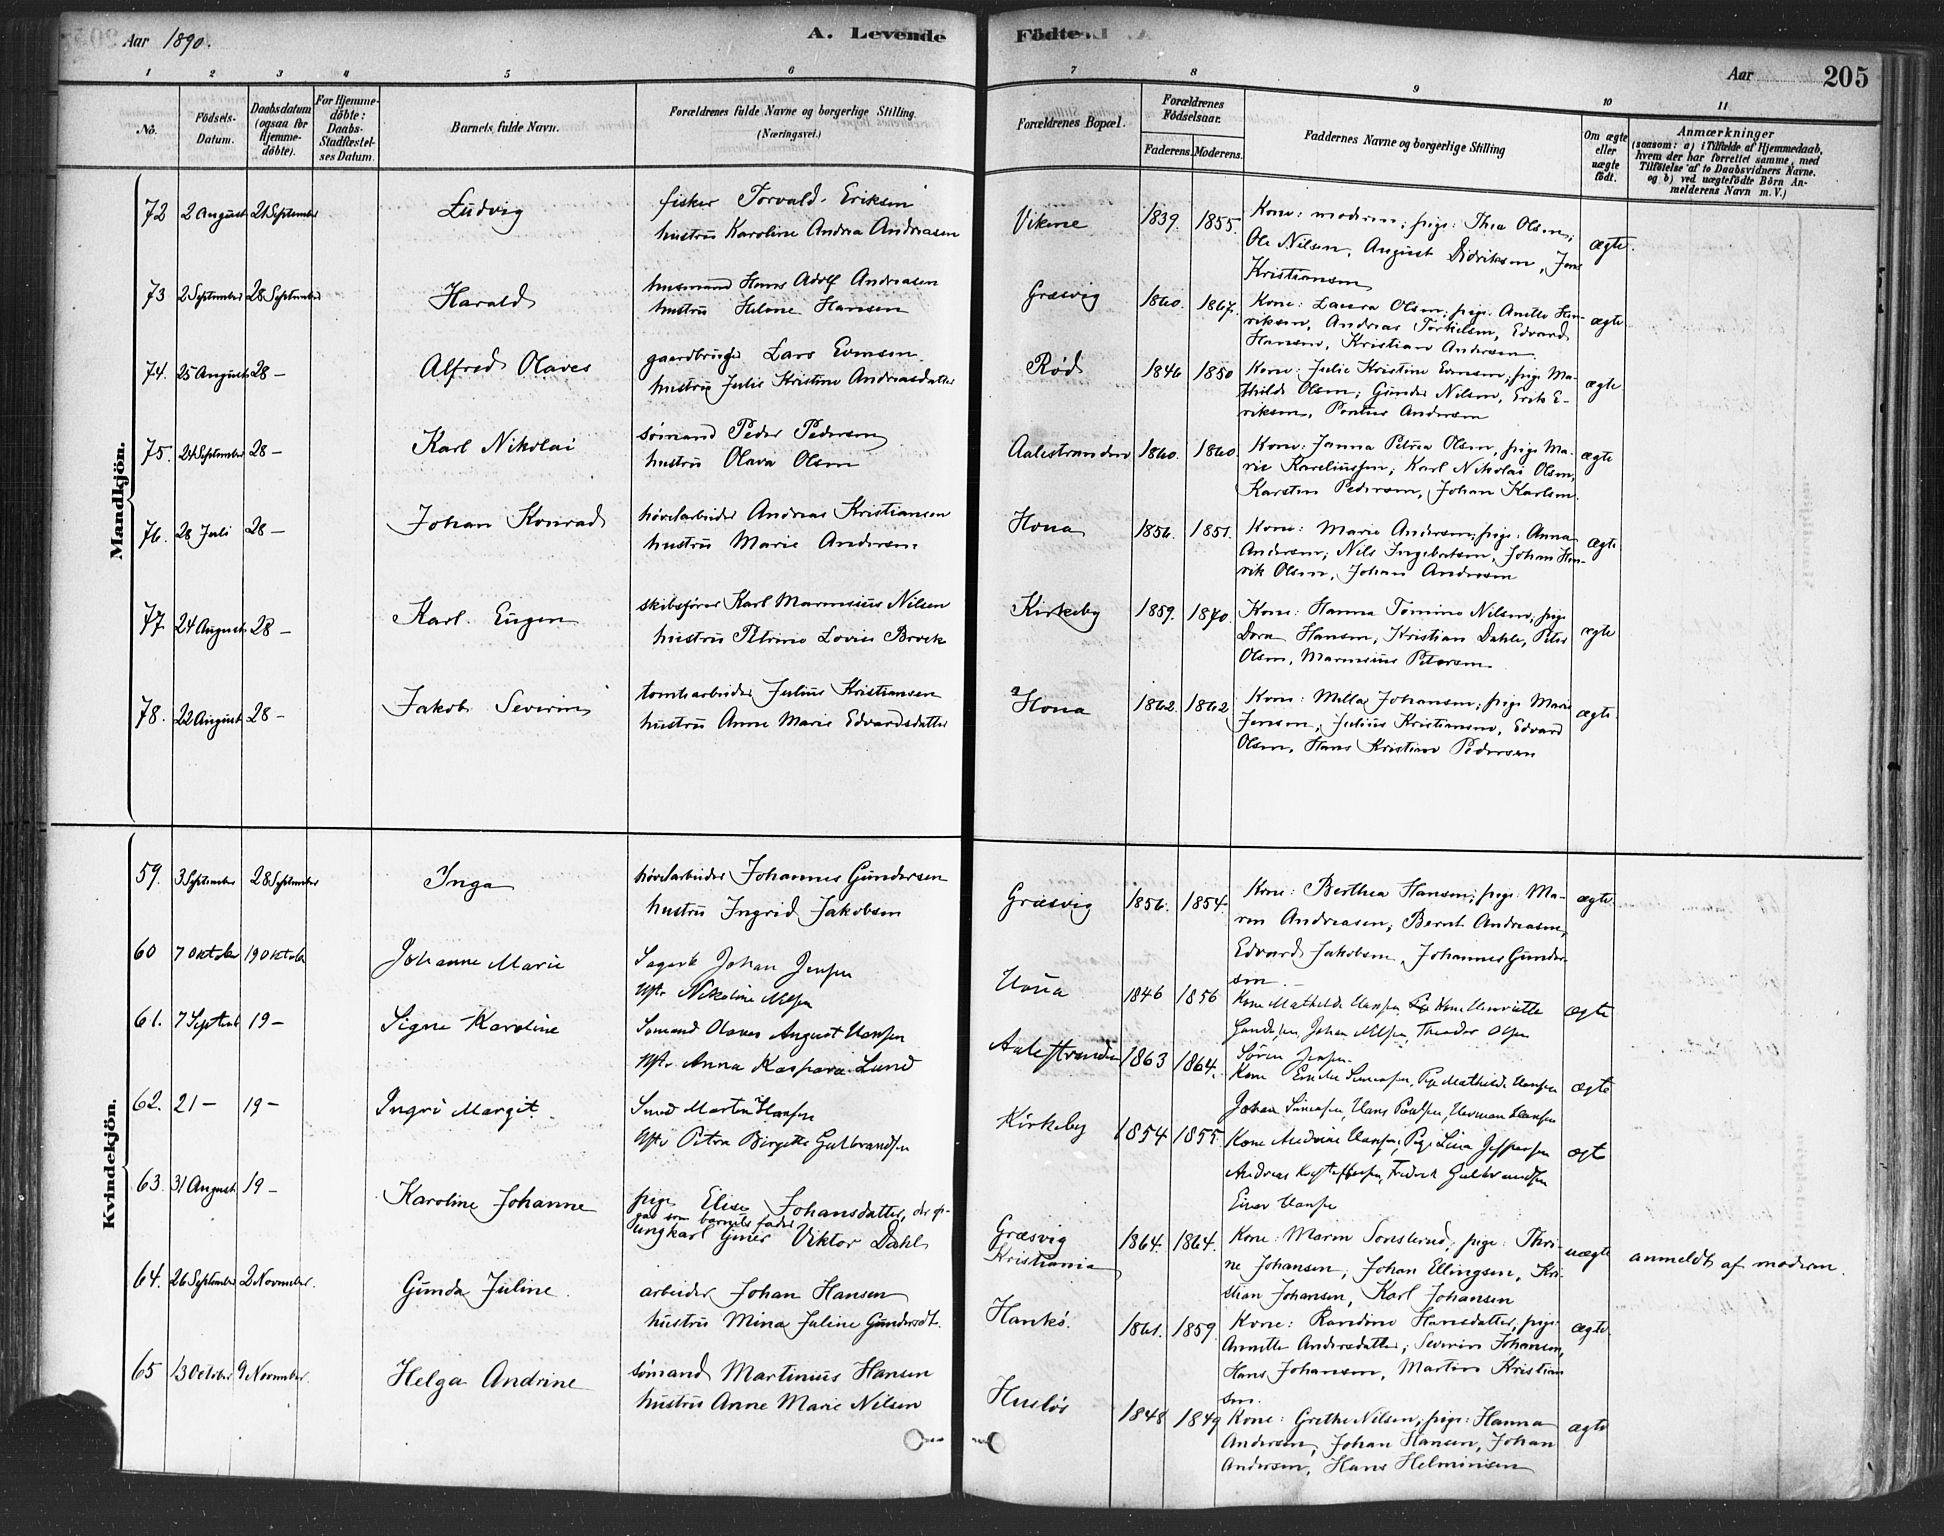 Aar 1890.
A. Levende
Födte.
Aar
205
1 2 3 4 5 6 7 8 9 10 11
No.
Födsels-
Datum.
Daabsdatum
(ogsaa for
Hjemme-
döbte).
For Hjemme-
döbte:
Daabs-
Stadfæstel-
ses Datum.
Barnets fulde Navn.
Forældrenes fulde Navne og borgerlige Stilling.
(Næringsvei.)
Forældrenes Bopæl.
Forældrenes
Födselsaar.
Faderens. Moderens.
Faddernes Navne og borgerlige Stilling
Om ægte
eller
uægte
født.
Anmærkninger
(saasom: a) i Tilfælde af Hjemmedaab,
hvem der har forrettet samme, med
Tilföielse af to Daabsvidners Navne.
og b) ved uægtefödte Börn An-
melderens Navn m.V.)
Mandkjön.
72 2 August 21 September
Ludvig
fisker Torvald Eriksen
hustru Karoline Andrea Andreasen
Vikene 1839. 1855.
Kone: moderen; pige: Thea Olsen;
Ole Nilsen, August Didriksen, Jens
Kristiansen
ægte.
73 2 September 28 September
Harald
husmand Hans Adolf Andreasen
hustru Helene Hansen
Græsvig 1860. 1867.
Kone: Laura Olsen; pige: Anette Hen-
riksen, Andreas Torkelsen, Edvard
Hansen, Kristian Andersen
ægte
74. 25 August 28 -
Alfred Olaves
gaardbruger Lars Evensen.
hustru Julie Kristine Andreasdatter
Rød 1846 1850
Kone: Julie Kristine Evensen; pige Ma-
thilde Olsen; Gunder Nilsen, Erik E-
riksen, Pontus Andersen
ægte
75. 24 September 28 -
Karl Nikolai
sømand Peder Pedersen
hustru Olava Olsen
Aalestranden 1860. 1860.
Kone: Janna Petrea Olsen, pige Ma-
rie Kareliussen; Karl Nikolai Olsen,
Karsten Pedersen, Johan Karlsen.
ægte
76. 28 Juli 28 -
Johan Konrad
høvelarbeider Andreas Kristiansen
hustru Marie Andersen.
Houa 1856. 1851.
Kone: Marie Andersen; pige: Anna
Andersen; Nils Ingebretsen, Johan Hen-
rik Olsen, Johan Andersen
ægte
77. 24 August 28 -
Karl Eugen
skibsfører Karl Marensius Nilsen
hustru Petrine Lovise Brock
Kirkeby 1859. 1870.
Kone: Hanna Tomine Nilsen, pige
Dora Hansen, Kristian Dahle, Peter
Olsen, Marensius Petersen
ægte
78. 22 August 28 -
Jakob Severin
tomtearbeider Julius Kristiansen
hustru Anne Marie Edvardsdatter
Houa 1862. 1862
Kone: Milla Johansen; pige Marie
Jensen; Julius Kristiansen, Edvard
Olsen, Hans Kristian Pedersen
ægte.
Kvindekjön.
59. 3 September 28 September
Inga
høvelarbeider Johannes Gundersen
hustru Ingrid Jakobsen
Græsvig 1856. 1854.
Kone: Berthea Hansen; pige: Ma-
ren Andreasen, Bernt Andreasen,
Edvard Jakobsen, Johannes Gunder-
sen
ægte.
60 7 Oktober 19 Oktober
Johanne Marie
Sagarb Johan Jensen
Hstr. Nikoline Nilsen
Houa 1846 1856
Kone Mathilde Hansen Kone Henriette
Gundersen, Johan Nilsen, Theodor Olsen
Sören Jensen.
ægte
61. 7 Septemb 19 -
Signe Karoline
Sömand Olaves August Hansen
Hstr. Anna Kaspara Lund
Aalestranden 1863 1864.
Kone Emilie Simensen, Pige Mathilde Hansen
Johan Simensen, Hans Paulsen, Herman Hansen
ægte
62. 21 - 19 -
Ingri Margit.
Smed Martin Hansen
Hstr Petra Birgitte Gulbrandsen
Kirkeby 1854 1855.
Kone Andrine Hansen, Pige Lina Jeppesen
Andreas Kristoffersen, Fredrik Gulbrandsen
Einar Hansen
ægte
63. 31 August 19 -
Karoline Johanne
pige Elise Johansdatter, der op-
gav som barnets fader
ungkarl Giner Viktor Dahl
Græsvig
Kristiania
1864. 1864.
Kone: Maren Sonslerud; pige: Thri-
ne Johansen, Johan Ellingsen, Kri-
stian Johansen, Karl Johansen
uægte
anmeldt af moderen.
64. 26 September 2 November.
Gunda Juline.
arbeider Johan Hansen
hustru Mina Juline Gundersdt.
Hankø. 1861. 1859.
Kone: Randine Hansdatter, pige:
Annette Andersdatter; Severin Johansen,
Hans Johansen, Martin Kristian
sen.
ægte
65 13 October 9 November.
Helga Andrine
sømand Martinius Hansen
hustru Anne Marie Nilsen
Husløs 1848 1849
Kone: Grethe Nilsen; pige: Hanna
Andersen, Johan Hansen, Johan
Andersen, Hans Helminsen
ægte